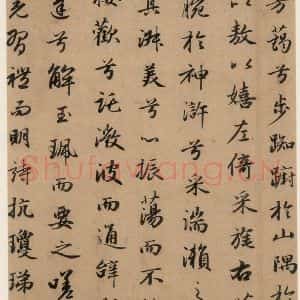 芳藹兮步踟躕於山隅於
以敖以嬉左倚采旄右
腕於神滸兮采湍瀨之
其淑美兮心振蕩而不
接歡兮託微波而通辭
達兮解玉珮而要之嗟
羌習禮而明詩抗瓊珶
Shufawang.CN